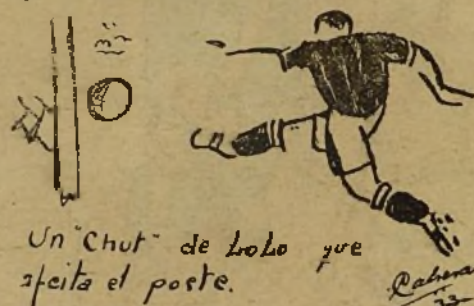 Un "Chut" de LoLo que
afeita el poste.
Cabrera